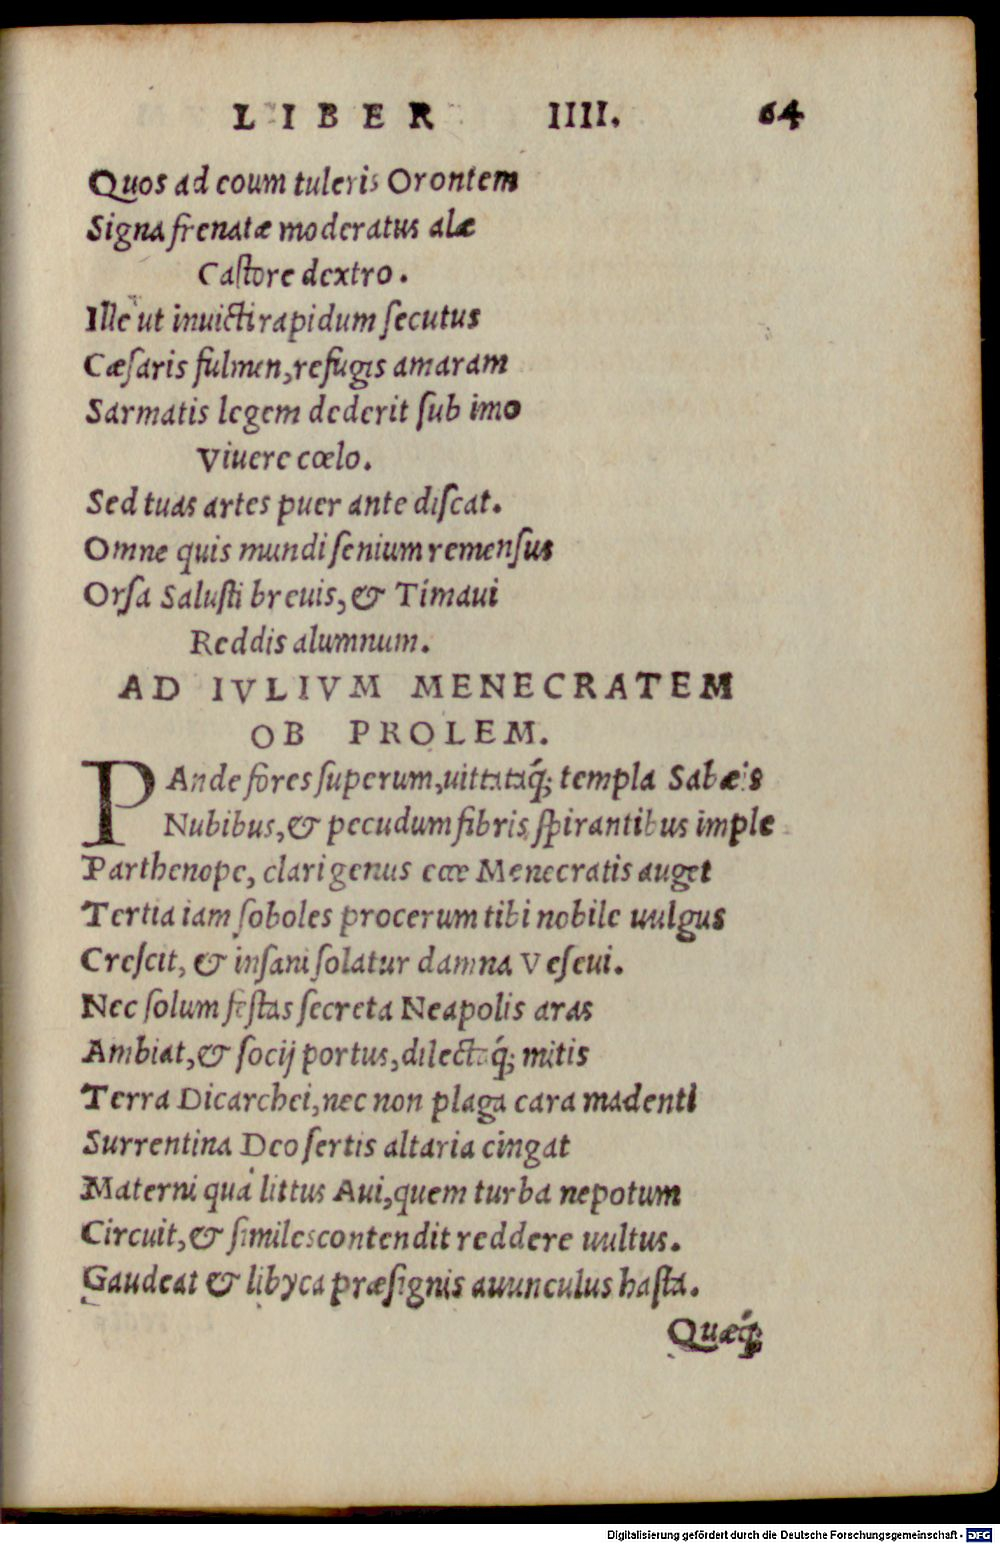 LIBER IIII. 64
Quos ad coum tuleris Orontem
Signa frenatæ moderatus alæ
Castore dextro.
Ille ut inuicti rapidum secutus
Cæsaris fulmen, refugis amaram
Sarmatis legem dederit sub imo
Viuere cœlo.
Sed tuas artes puer ante discat.
Omne quis mundi senium remensus
Orsa Salusti breuis, & Timaui
Reddis alumnum.
AD IVLIVM MENECRATEM
OB PROLEM.
PAnde fores superum, uittataq́; templa Sabæis
Nubibus, & pecudum fibris spirantibus imple
Parthenope, clari genus eæ Menecratis auget
Tertia iam soboles procerum tibi nobile uulgus
Crescit, & insani solatur damna Veseui.
Nec solum festas secreta Neapolis aras
Ambiat, & socij portus, dilectaq́; mitis
Terra Dicarchei, nec non plaga cara madenti
Surrentina Deo sertis altaria cingat
Materni quà littus Aui, quem turba nepotum
Circuit, & similes contendit reddere uultus.
Gaudeat & libyca præsignis auunculus hasta.
Quæq́;
Digitalisierung gefördert durch die Deutsche Forschungsgemeinschaft - DFG